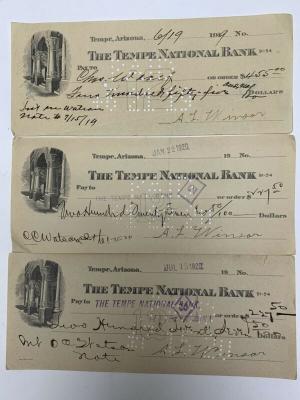 Tempe, Arizona, 6/19 1919 No.
THE TEMPE NATIONAL BANK 91-54
PAY TO
OR ORDER $455.00
Four Hundred fifty five DOLLARS
Int on Watson
Note to 7/15/19
A. L. Winsor
Tempe, Arizona, JAN 22 1920 19 No.
THE TEMPE NATIONAL BANK 91-54
Pay to THE TEMPE NATIONAL
or order $227.50
Two Hundred Twenty Seven 50/100 Dollars
O C Watson
A. L. Winsor
Tempe, Arizona, JUL 15 1920 19 No.
THE TEMPE NATIONAL BANK 91-54
Pay to THE TEMPE NATIONAL BANK
or order $227.50
Two Hundred Dollars
Int O C Watson
Note
A. L. Winsor